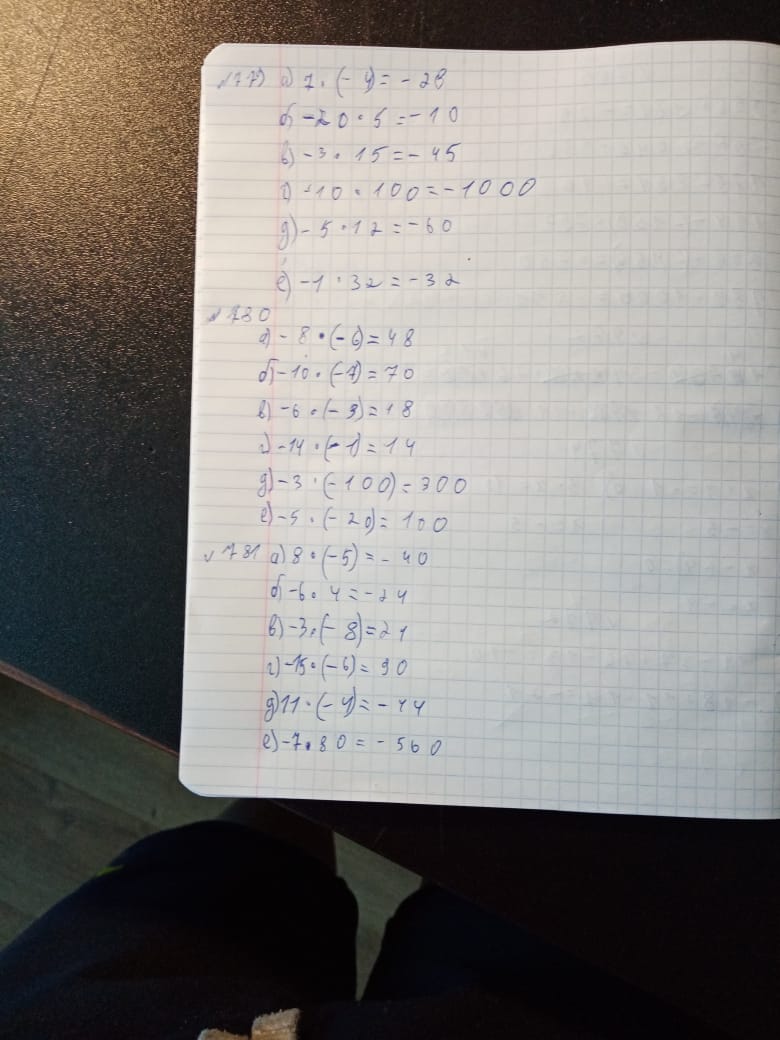 №779 а) 7 · (- 4) = - 28
б) -20 · 5 = -10
в) -3 · 15 = -45
г) -10 · 100 = -1000
д) -5 · 12 = -60
е) -1 · 32 = -32
№780
а) - 8 · (-6) = 48
б) -10 · (-7) = 70
в) -6 · (- 3) = 18
г) -14 · (- 1) = 14
д) -3 · (- 100) = 300
е) -5 · (- 20) = 100
№ 781 а) 8 · (-5) = - 40
б) -6 · 4 = -24
в) -3 · (- 8) = 24
г) -15 · (-6) = 90
д) 11 · (- 4) = - 44
е) -7 · 80 = - 560